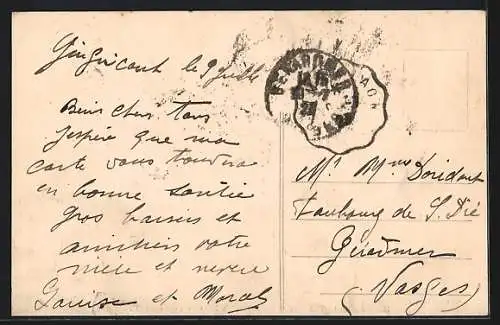 le 9 juillet
Biens chers tous
J'espère que ma
carte vous touvera
en bonne santée
gros baisers et
amitiers votre
niece et neveu
Louise et Marcel
Mr Mme
Faubourg de St Dié
Gérardmer
(Vosges)